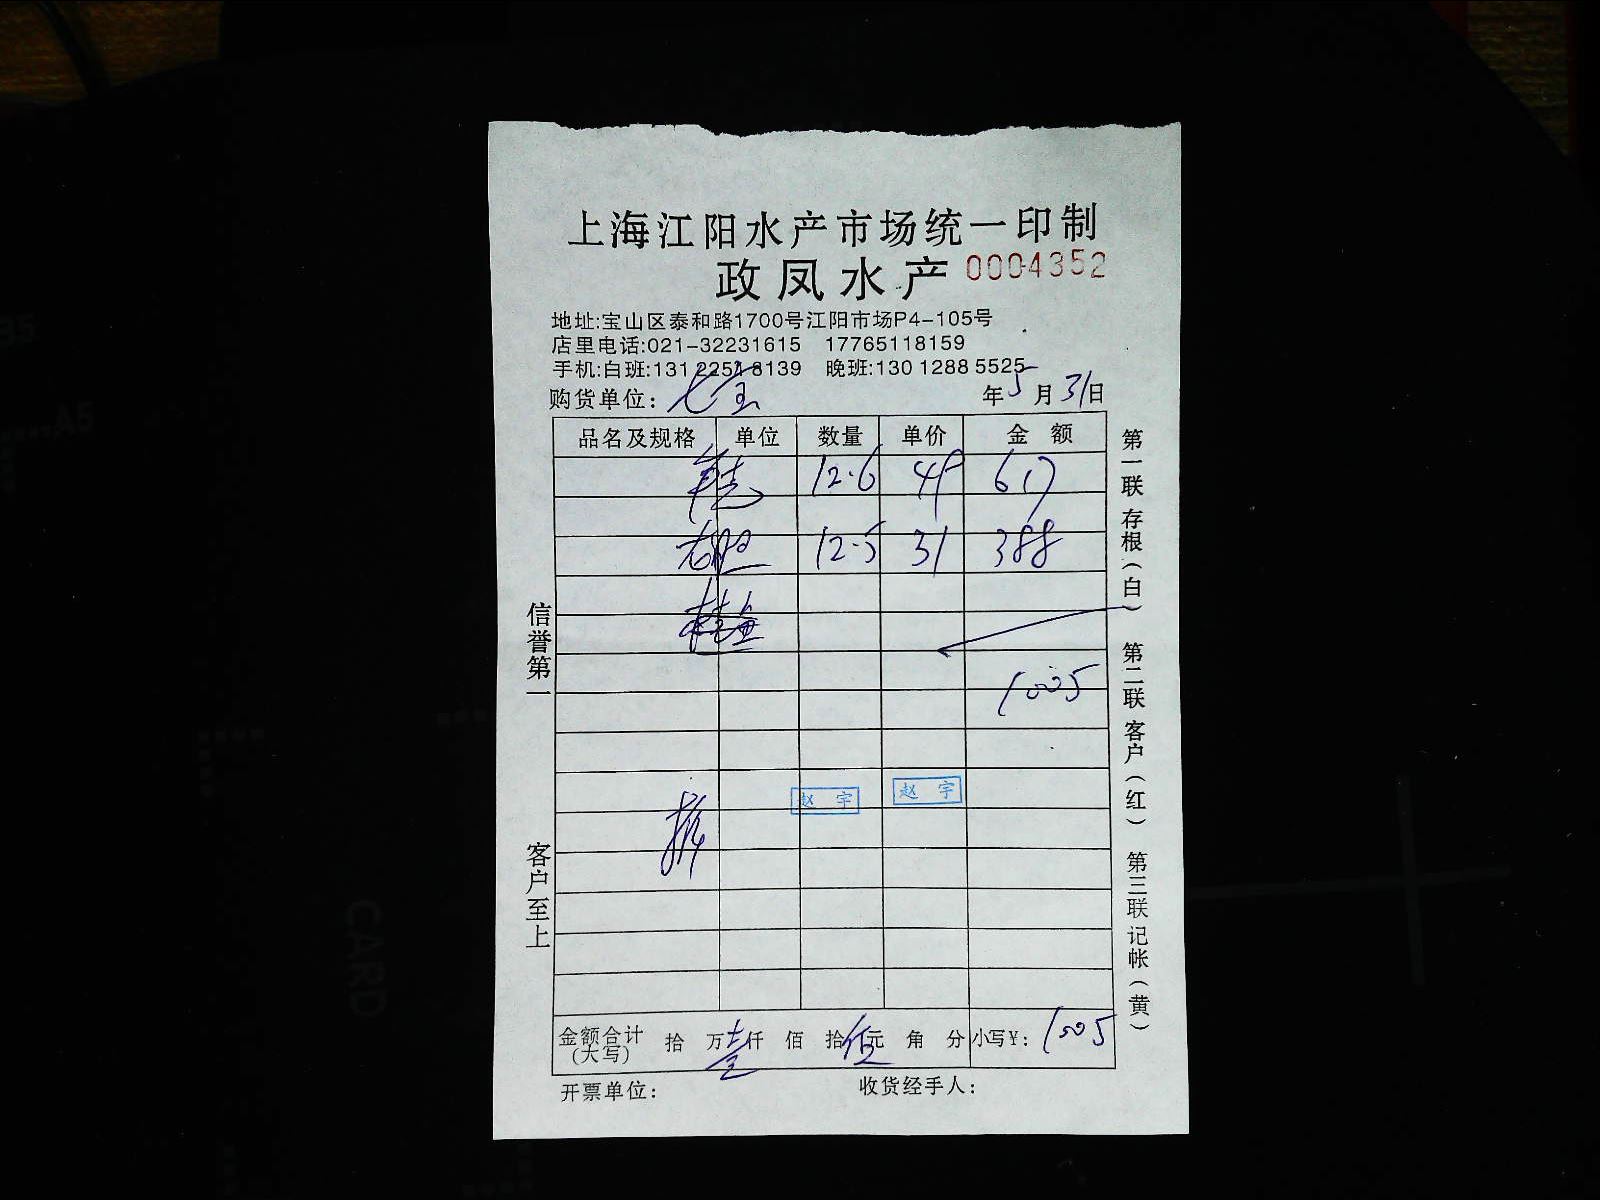 上海江阳水产市场统一印制
政凤水产 0004352
地址:宝山区泰和路1700号江阳市场P4-105号
店里电话:021-32231615 17765118159
手机:白班:131 2251 8139 晚班:130 1288 5525
购货单位: 七宝 年5月31日
品名及规格 单位 数量 单价 金 额
12.6 49 617
12.5 31 388
1005
赵 宇 赵 宇
金额合计(大写) 拾 万壹仟 佰 拾伍元 角 分 小写¥: 1005
开票单位: 收货经手人:
信誉第一 客户至上
第一联 存根(白) 第二联 客户(红) 第三联 记帐(黄)